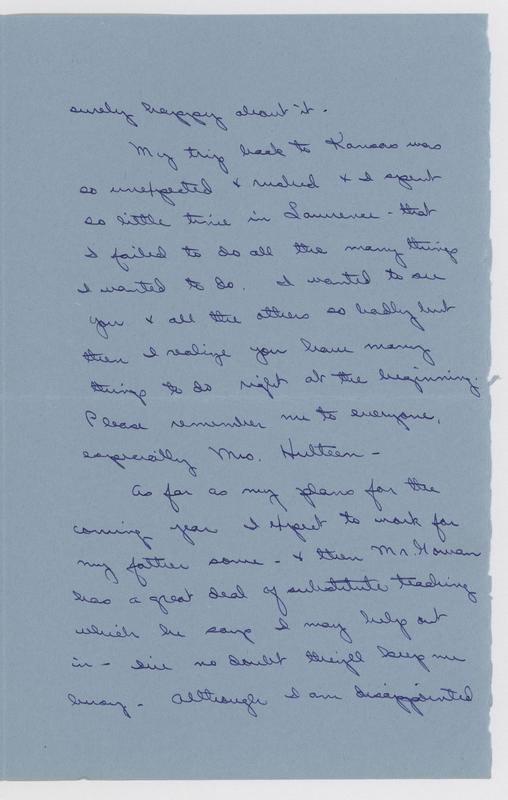 surely happy about it.
My trip back to Kansas was
so unexpected & rushed & I spent
so little time in Lawrence - that
I failed to do all the many things
I wanted to do. I wanted to see
you & all the others so badly but
then I realize you have many
things to do right at the beginning.
Please remember me to everyone,
especially Mrs. Hulteen -
As far as my plans for the
coming year I expect to work for
my father some - & then Mr. Gowan
has a great deal of substitute teaching
which he says I may help out
in - so no doubt they'll keep me
busy. Although I am disappointed